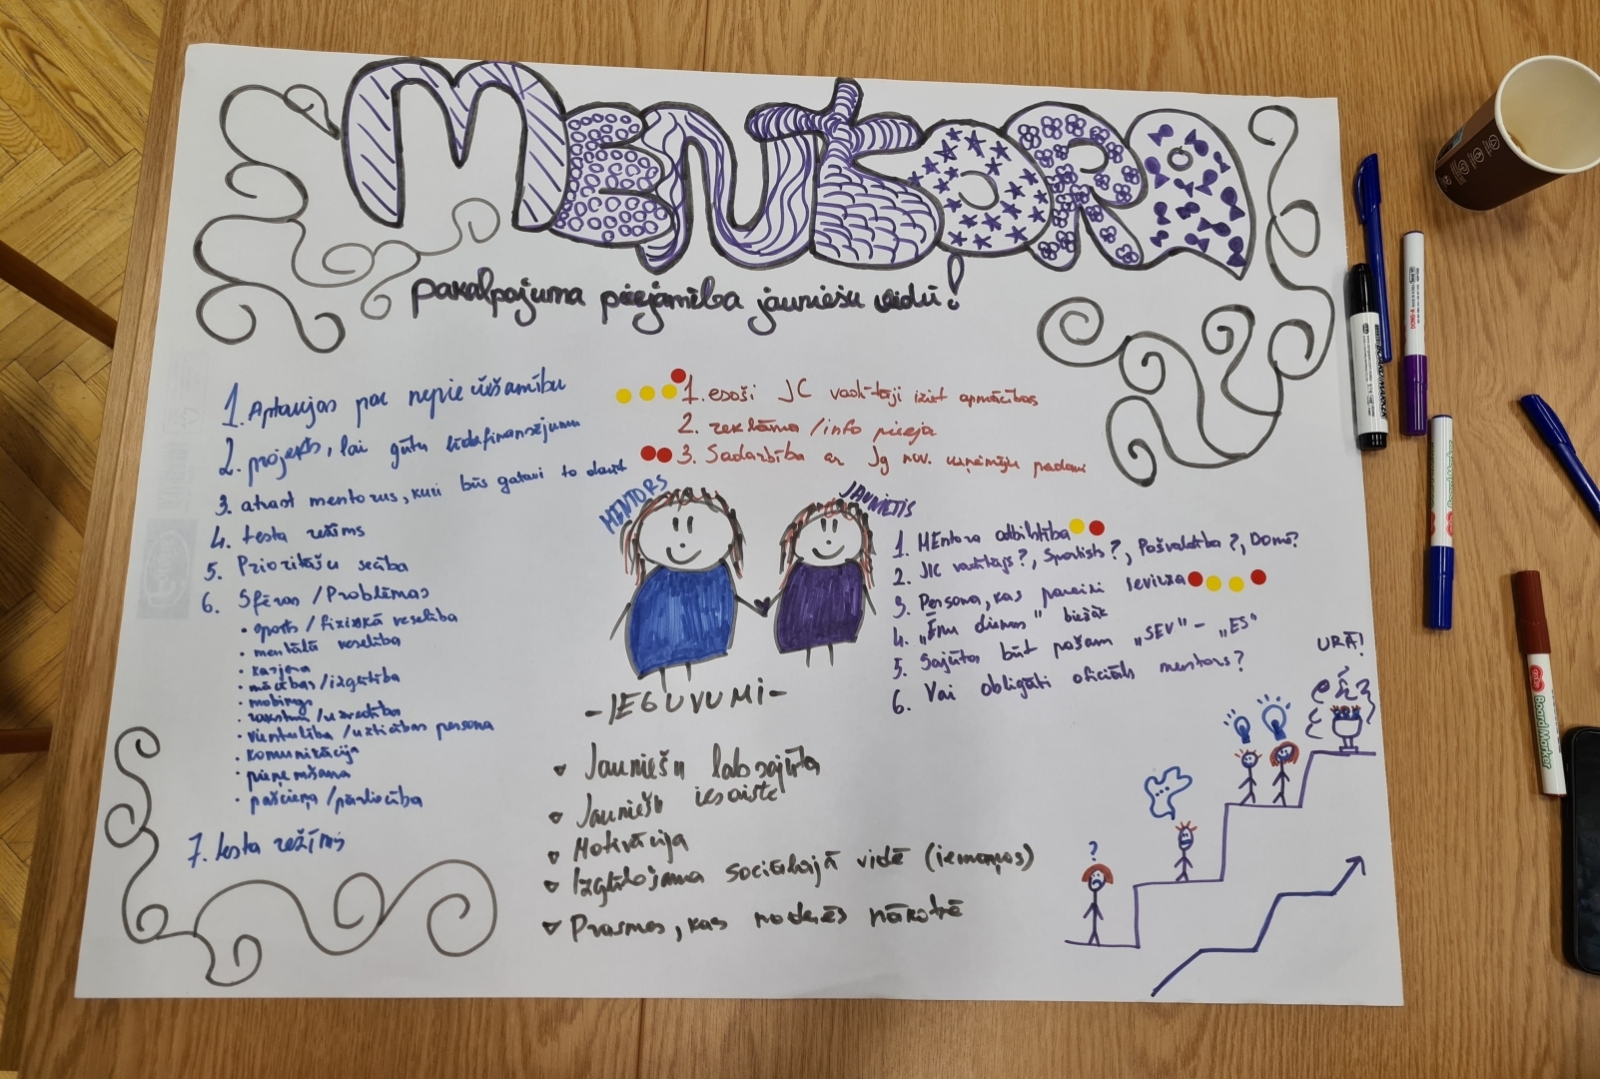 MENTORA
pakalpojuma pieejamība jauniešu vidū!
1. Aptaujas par nepieciešamību
2. projekts, lai gūtu līdzfinansējumu
3. atrast mentorus, kuri būs gatavi to darīt
4. testa režīms
5. Prioritāšu secība
6. Sfēras / Problēmas
• sports / fiziskā veselība
• mentālā veselība
• karjera
• mācības / izglītība
• mobings
• raksturs / uzvedība
• vientulība / uzticības persona
• komunikācija
• pieņemšana
• pašcieņa / pārliecība
7. testa režīms
1. esoši JC vadītāji iziet apmācības
2. reklāma / info pieeja
3. Sadarbība ar Jg nov. uzņēmēju padomi
MENTORS
JAUNIETIS
1. MEntora atbilstība
2. JIC vadītājs?, Speciālists?, Pašvaldība?, Dome?
3. Persona, kas pareizi ievirza
4. "Ēnu dienas" biežāk
5. Sajūtas būt pašam "SEV" - "ES"
6. Vai obligāti oficiāls mentors?
- IEGUVUMI -
Jauniešu labsajūta
Jauniešu iesaiste
Motivācija
Izglītojama sociālajā vidē (iemaņas)
Prasmes, kas noderēs nākotnē
?
URĀ!
Board Marker